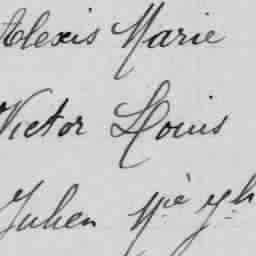 Alexis Marie
Victor Louis
Julien Mie